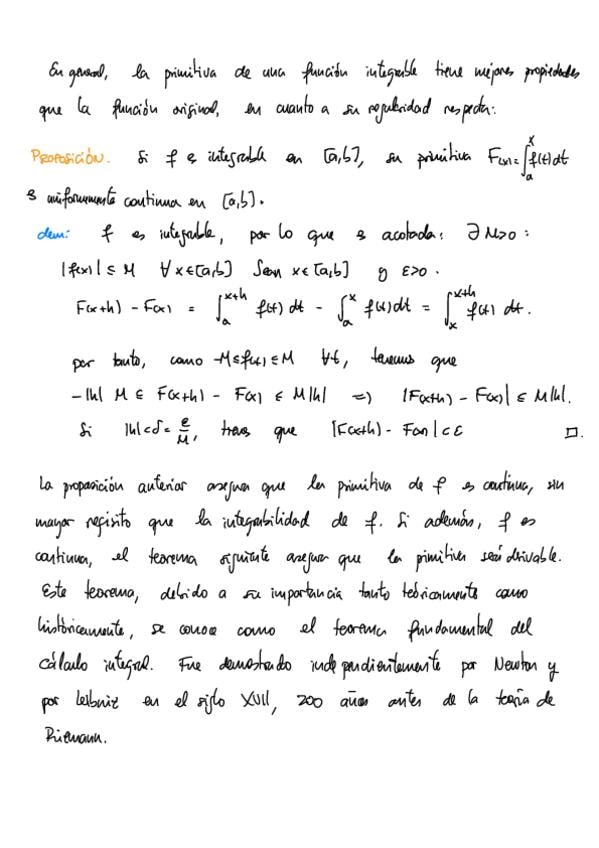 En general, la primitiva de una función integrable tiene mejores propiedades
que la función original, en cuanto a su regularidad respecta:
PROPOSICIÓN. Si f es integrable en [a,b], su primitiva F(x) = ∫_a^x f(t) dt
es uniformemente continua en [a,b].
dem: f es integrable, por lo que es acotada: ∃ M>0 :
|f(x)| ≤ M ∀ x ∈ [a,b] Sean x ∈ [a,b] y ε>0.
F(x+h) - F(x) = ∫_a^{x+h} f(t) dt - ∫_a^x f(t) dt = ∫_x^{x+h} f(t) dt.
por tanto, como -M ≤ f(t) ≤ M ∀t, tenemos que
-|h| M ≤ F(x+h) - F(x) ≤ M|h| => |F(x+h) - F(x)| ≤ M|h|.
Si |h| < δ = ε/M, que |F(x+h) - F(x)| < ε □.
La proposición anterior asegura que la primitiva de f es continua, sin
mayor que la integrabilidad de f. Si además, f es
continua, el teorema siguiente asegura que la primitiva será derivable.
Este teorema, debido a su importancia tanto teóricamente como
históricamente, se conoce como el teorema fundamental del
cálculo integral. Fue demostrado independientemente por Newton y
por Leibniz en el siglo XVII, 200 años antes de la teoría de
Riemann.